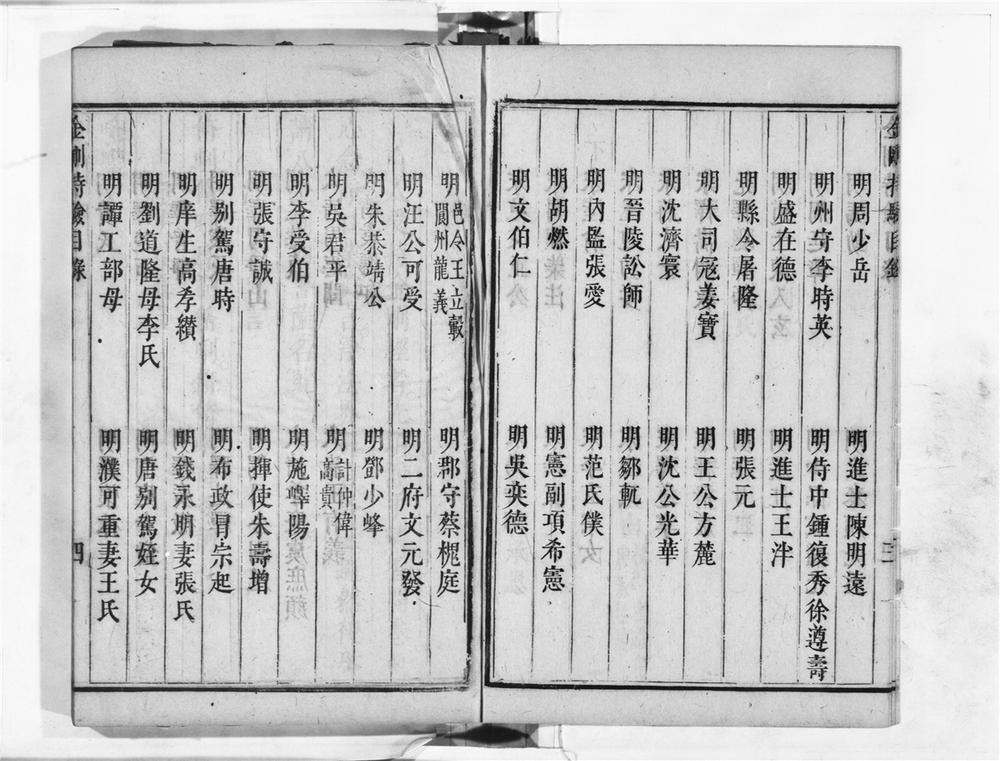 金剛持驗目錄
三
明周少岳
明進士陳明遠
明州守李時英
明侍中鍾復秀徐遵壽
明盛在德
明進士王泮
明縣令屠隆
明張元
明大司冦姜寳
明王公方麓
明沈濟寰
明沈公光華
明晉陵訟師
明鄒軏
明內監張愛
明范氏僕
明胡燃
明憲副項希憲
明文伯仁
明吳奕德
明邑令王立轂
閬州龍義
明郡守蔡槐庭
明汪公可受
明二府文元發
明朱恭靖公
明鄧少峰
明吳君平
明計仲偉
高貴
明李受伯
明施嶧陽
明張守誠
明揮使朱壽增
明别駕唐時
明布政冒宗起
明庠生高孝纉
明錢永明妻張氏
明劉道隆母李氏
明唐别駕姪女
明譚工部母
明濮可重妻王氏
金剛持驗目錄
四